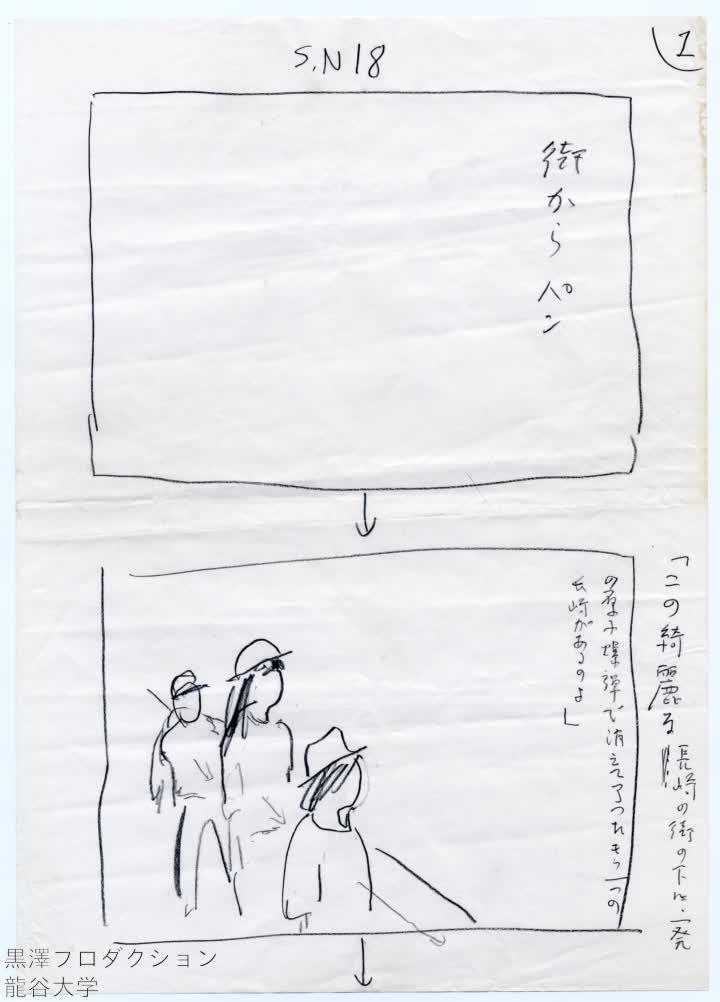 1
S.N18
街から パン
「この綺麗な長崎の街の下に、一発
の原子爆弾で消えて了ったもう一つの
長崎があるのよ」
黒澤プロダクション
龍谷大学